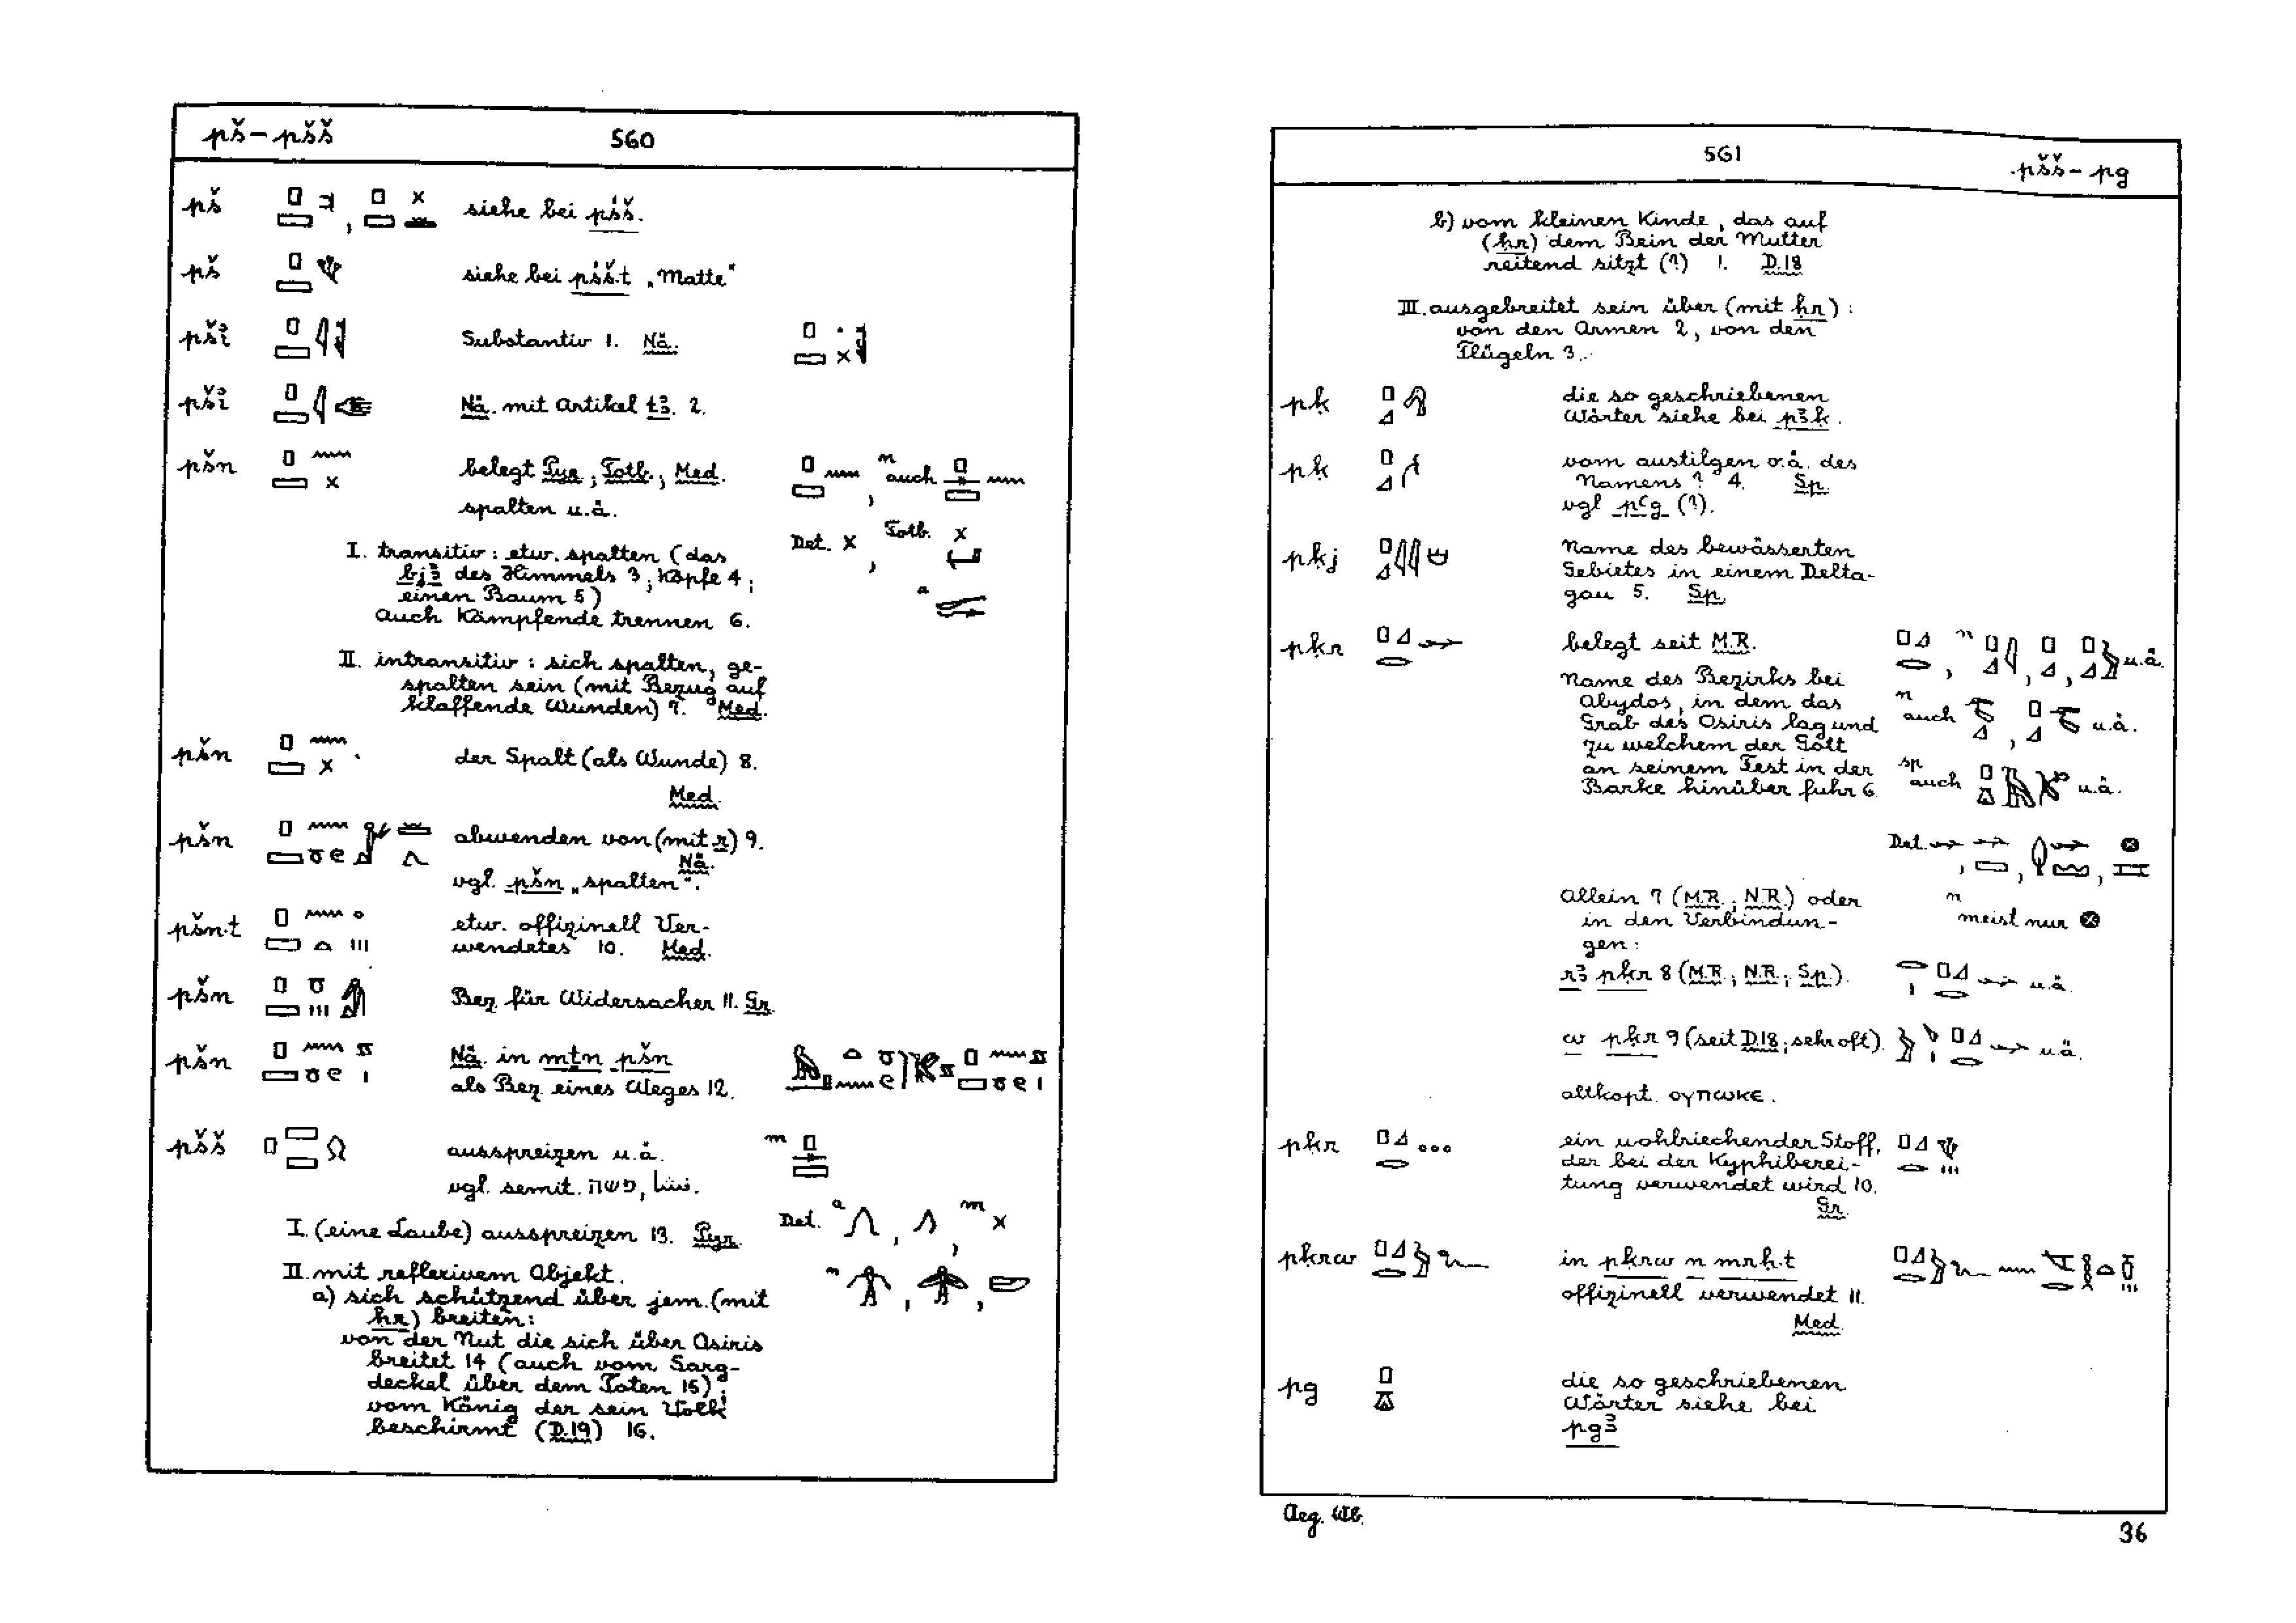 pš – pšš 560
pš siehe bei pśš.
pš siehe bei pśš.t „Matte"
pšỉ Substantiv 1. Nä.
pšỉ Nä. mit Artikel tꜣ. 2.
pšn belegt Pyr.; Totb.; Med. n auch
spalten u.ä.
Det. , Totb.
I. transitiv: etw. spalten (das
bjꜣ des Himmels 3; Köpfe 4;
einen Baum 5) a
auch Kämpfende trennen 6.
II. intransitiv: sich spalten, ge-
spalten sein (mit Bezug auf
klaffende Wunden) 7. Med.
pšn der Spalt (als Wunde) 8.
Med.
pšn abwenden von (mit r) 9.
Nä.
vgl. pšn „spalten".
pšn.t etw. offizinell Ver-
wendetes 10. Med.
pšn Bez. für Widersacher 11. Gr.
pšn Nä. in mṯn pšn
als Bez. eines Weges 12.
pšš ausspreizen u.ä. m
vgl. semit. פשה,
I. (eine Laube) ausspreizen 13. Pyr. Det. a , , m
II. mit reflexivem Objekt. n , ,
a) sich schützend über jem. (mit
ḥr) breiten:
von der Nut die sich über Osiris
breitet 14 (auch vom Sarg-
deckel über dem Toten 15);
vom König der sein Volk
beschirmt (D.19) 16.
561 pšš – pg
b) vom kleinen Kinde, das auf
(ḥr) dem Bein der Mutter
reitend sitzt (?) 1. D.18
III. ausgebreitet sein über (mit ḥr):
von den Armen 2, von den
Flügeln 3.
pḳ die so geschriebenen
Wörter siehe bei pꜣḳ.
pḳ vom austilgen o.ä. des
Namens? 4. Sp.
vgl. pꜥg (?).
pḳj Name des bewässerten
Gebietes in einem Delta-
gau 5. Sp.
pḳr belegt seit M.R. , n , , u.ä.
Name des Bezirks bei
Abydos, in dem das
Grab des Osiris lag und n auch , u.ä.
zu welchem der Gott
an seinem Fest in der
Barke hinüber fuhr 6. sp auch u.ä.
Det. , , ,
Allein 7 (M.R.; N.R.) oder n
in den Verbindun- meist nur
gen:
rꜣ pḳr 8 (M.R.; N.R.; Sp.). u.ä.
w pḳr 9 (seit D.18; sehr oft). u.ä.
altkopt. ογπωκε.
pḳr ein wohlriechender Stoff,
der bei der Kyphiberei-
tung verwendet wird 10.
Gr.
pḳrw in pḳrw n mrḥ.t
offizinell verwendet 11.
Med.
pg die so geschriebenen
Wörter siehe bei
pgꜣ
Aeg. Wb.
36